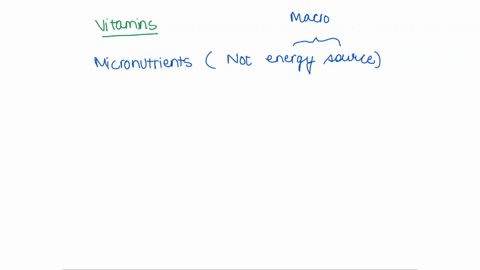 Vitamins
Macro
Micronutrients ( Not energy source)